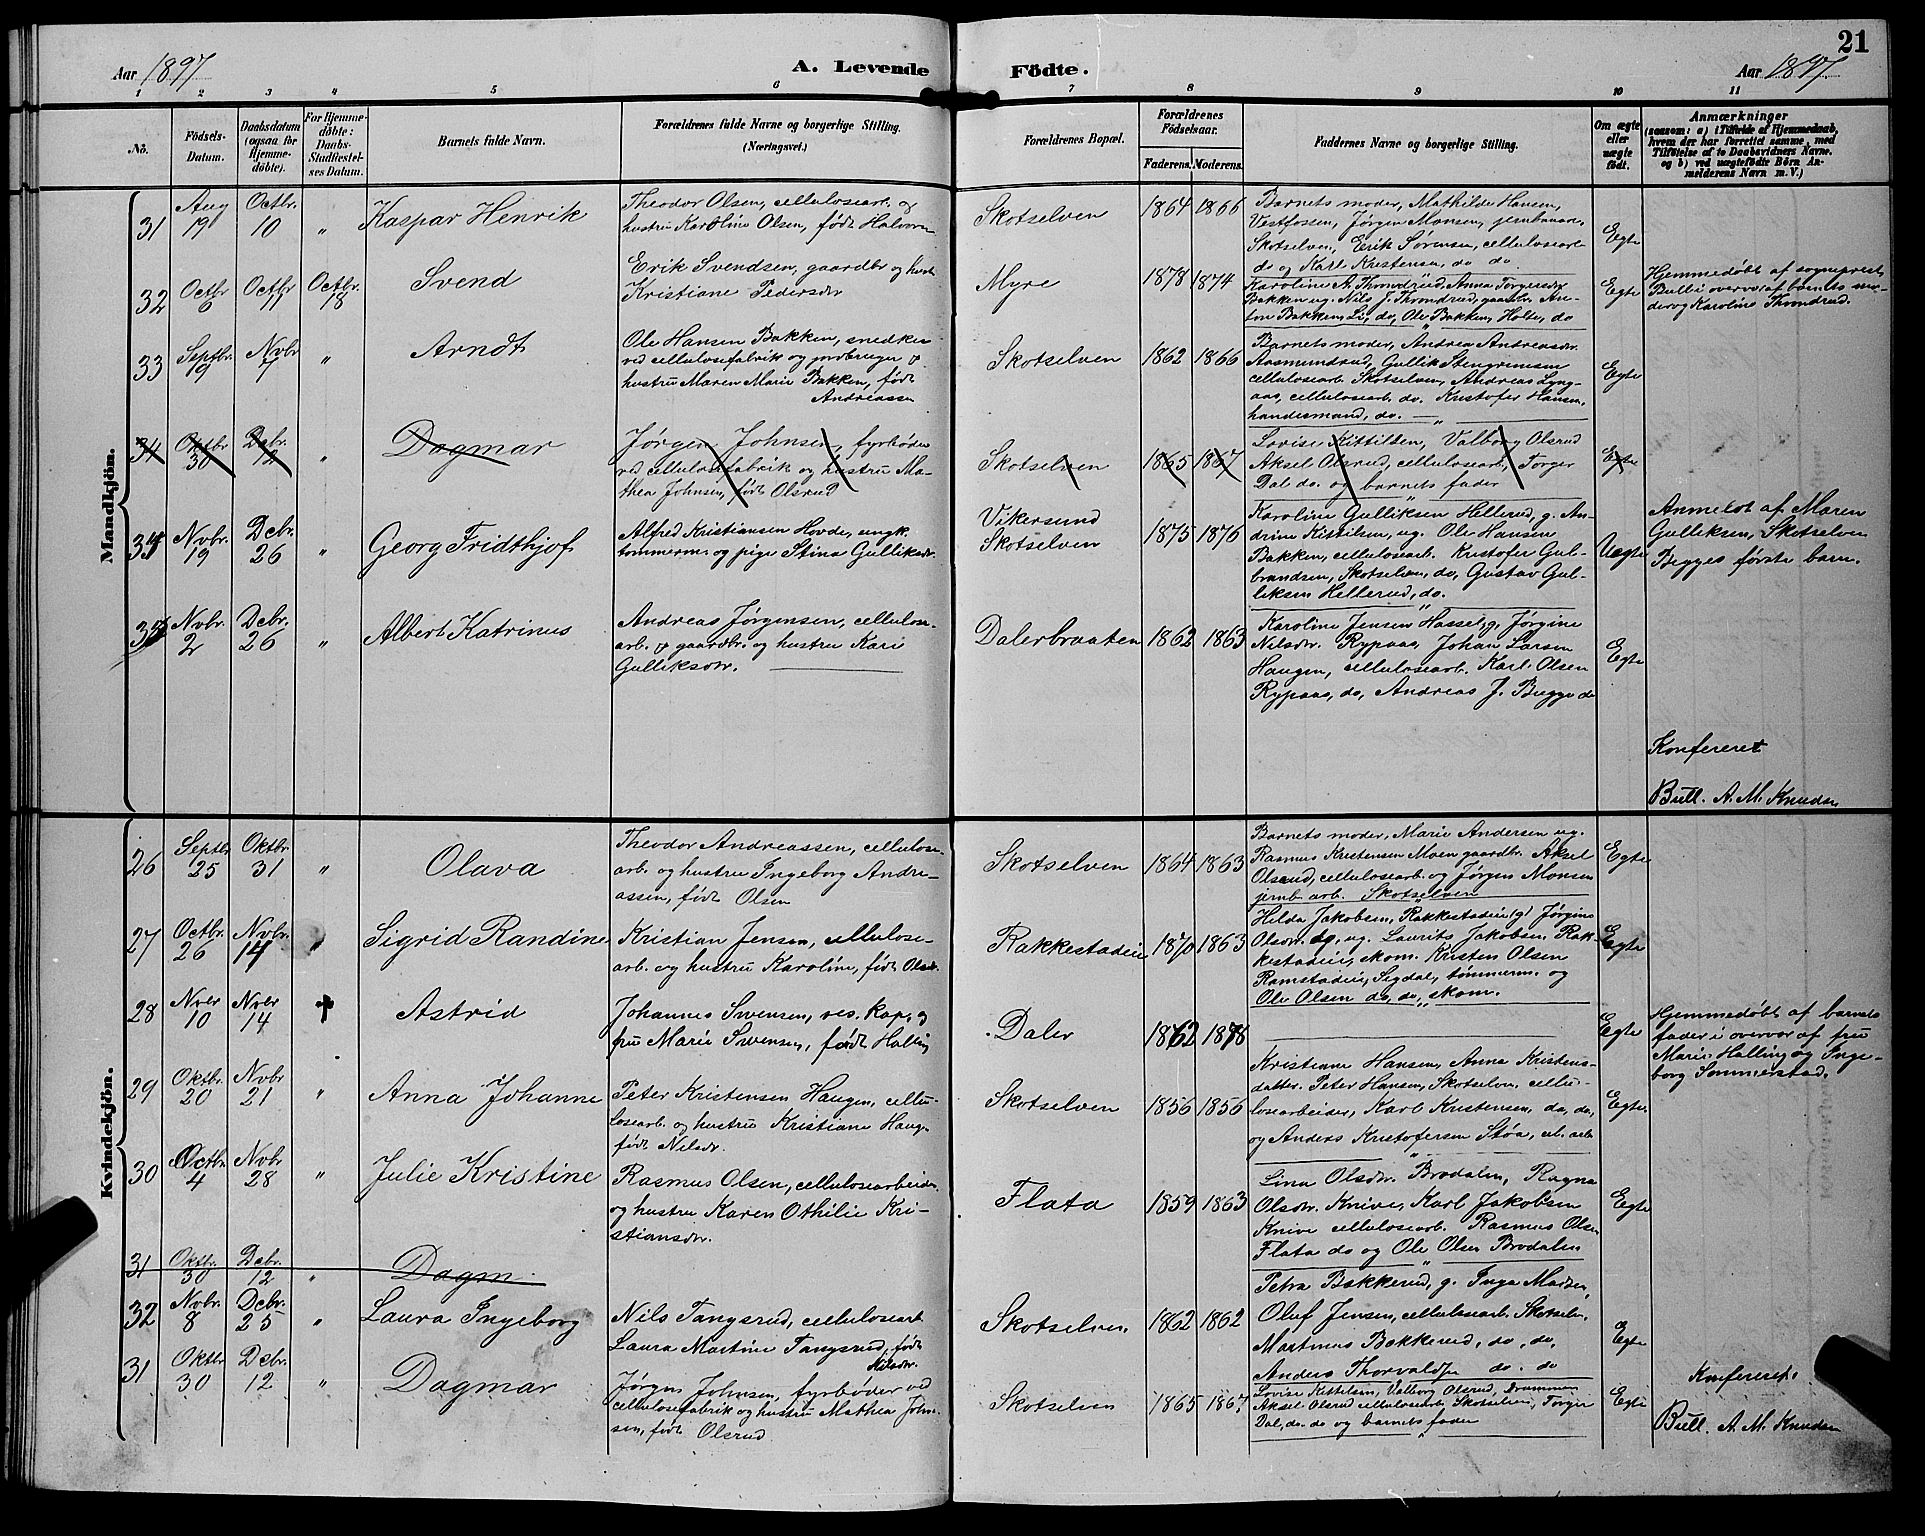 21
Aar 1897
A. Levende Födte.
Aar 1897
1 2 3 4 5 6 7 8 9 10 11
No.
Födsels-
Datum.
Daabsdatum
(ogsaa for
Hjemme-
döbte).
For Hjemme-
döbte:
Daabs-
Stadfæstel-
ses Datum.
Barnets fulde Navn.
Forældrenes fulde Navne og borgerlige Stilling.
(Næringsvei.)
Forældrenes Bopæl.
Forældrenes
Födselsaar.
Faderens. Moderens.
Faddernes Navne og borgerlige Stilling.
Om ægte
eller
uægte
födt.
Anmærkninger
(saasom: a) i Tilfælde af Hjemmedaab,
hvem der har forrettet samme, med
Tilföielse af to Daabsvidners Navne,
og b) ved uægtefödte Börn An-
melderens Navn m. V.)
Mandkjön.
31
Aug
19
Octbr.
10
"
Kaspar Henrik
Theodor Olsen, cellulosearb. og
hustru Karoline Olsen, født Halvorsen
Skotselven
1864 1866
Barnets moder, Mathilde Hansen,
Vestfossen, Jørgen Monsen, jernbanearb.
Skotselven, Erik Sørensen, cellulosearb
do og Karl Kristensen, do do.
Egte
32
Octbr
6
Octbr
11
Octbr.
18
Svend
Erik Svendsen, gaardbr og hustru
Kristiane Pedersdr
Myre
1878 1874
Karoline A. Throndrud, Anna Torgersdr
Bakken ug. Nils J. Throndrud, gaardbr. An-
ton Bakken, Li, do, Ole Bakken, Holte, do
Egte
Hjemmedøbt af sogneprest
Bull i overvær af barnets mo-
der og Karoline Throndrud.
33
Septbr.
19
Nvbr
7
"
Arndt
Ole Hansen Bakken, snedker
ved cellulosefabrik og jordbruger &
hustru Maren Marie Bakken, født
Andreassen
Skotselven
1862 1866
Barnets moder, Andrea Andreasdr.
Aasmundrud, Gullik Stengrimsen
cellulosearb. Skotselven, Andreas Lyng-
aas, cellulosearb. do. Kristofer Hansen,
handelsmand, do.
Egte
34
Oktbr
30
Dcbr.
12
"
Dagmar
Jørgen Johnsen, fyrbøder
ved cellulosefabrik og hustru Ma-
thea Johnsen, født Olsrud
Skotselven
1865 1867
Lovise Kittilsen, Valborg Olsrud
Aksel Olsrud, cellulosearb, Torger
Dal do. og barnets fader
Egte
35
Nvbr.
19
Dcbr.
26
"
Georg Fridthjof
Alfred Kristiansen Hovde, ungk.
tømmerm. og pige Stina Gulliksdr.
Vikersund
Skotselven
1875 1876
Karoline Gulliksen Hellerud, g. An-
drine Kittilsen, ug. Ole Hansen
Bakken, cellulosearb. Kristofer Gul-
brandsen, Skotselven, do, Gustav Gul-
liksen Hellerud, do.
Uegte
Anmeldt af Maren
Gulliksen, Skotselven
Begges første barn.
Nvbr.
2
Dcbr.
26
"
Albert Katrinus
Andreas Jørgensen, cellulose-
arb. & gaardbr. og hustru Kari
Gulliksdr.
Dalerbraaten
1862 1863
Karoline Jensen Hassel, g. Jørgine
Nilsdr. Rypaas, Johan Larsen
Haugen, cellulosearb. Karl Olsen
Rypaas, do, Andreas J. Bugge do
Egte
Konfereret
Bull. A. M. Knudsen
Kvindekjön.
26
Septbr
25
Oktbr.
31
"
Olava
Theodor Andreassen, cellulose-
arb. og hustru Ingeborg Andre-
assen, født Olsen
Skotselven
1864 1863
Barnets moder, Marie Andersen ug.
Rasmus Kristensen Moen gaardbr. Aksel
Olsrud, cellulosearb. og Jørgen Monsen
jernb. arb. Skotselven
Egte
27
Octbr.
26
Nvbr.
14
"
Sigrid Randine
Kristian Jensen, cellulose-
arb. og hustru Karoline, født Olsdr.
Rakkestadeie
1870 1863
Hilda Jakobsen, Rakkestadeie (g) Jørgine
Olsdr. do, ug. Laurits Jakobsen Rak-
kestadeie, skom. Kristen Olsen
Ramstadeie, Sigdal, tømmerm. og
Ole Olsen do, do, skom.
Egte
28
Nvbr
10
Nvbr
14
Astrid
Johannes Svensen, res. kap. og
fru Marie Svensen, født Halling
Daler
1862 1878
Egte
Hjemmedøbt af barnets
fader i overvær af fru
Marie Halling og Inge-
borg Sommerstad.
29
Oktbr.
20
Nvbr
21
"
Anna Johanne
Peter Kristensen Haugen, cellu-
losearb. og hustru Kristiane Haug.
født Nilsdr.
Skotselven
1856 1856
Kristiane Hansen, Anna Kristens-
datter. Peter Hansen, Skotselven, cellu-
losearbeider, Karl Kristensen, do, do,
og Anders Kristofersen Støa, cel. arb
Egte
30
Octbr.
4
Nvbr
28
"
Julie Kristine
Rasmus Olsen, cellulosearbeider.
og hustru Karen Othilie Kri-
stiansdr.
Flata
1859 1863
Lina Olsdr. Brodalen, Ragna
Olsdr. Knive, Karl Jakobsen
Knive cellulosearb. Rasmus Olsen
Flata do og Ole Olsen Brodalen
Egte
31
Oktbr.
30
Dcbr.
12
"
Dagm.
32
Nvbr.
8
Dcbr.
25
"
Laura Ingeborg
Nils Tangsrud, cellulosearb
Laura Martine Tangsrud, født
Nilsdr.
Skotselven.
1862 1862
Petra Bakkerud, g. Inga Madsen,
Oluf Jensen, cellulosearb. Skotselv.
Martinus Bakkerud, do, do,
Anders Thorvaldsen do. do
Egte
31
Oktbr
30
Dcbr.
12
"
Dagmar
Jørgen Johnsen, fyrbøder ved
cellulosefabrik og hustru Mathea John-
sen, født Olsrud
Skotselven
1865 1867
Lovise Kittelsen, Valborg Olsrud, Drammen
Aksel Olsrud cellulosearb Skotselven, Torger
Dal, do. do og barnets fader
Egte
Konfereret.
Bull. A. M. Knudsen